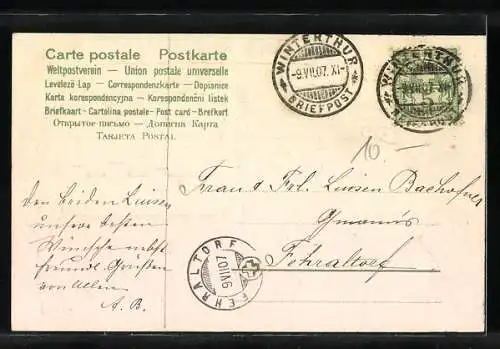 Carte postale Postkarte
Weltpostverein — Union postale universelle
Levelező-Lap — Correspondenzkarte — Dopisnice
Karta korespondencyjna — Korespondenční lístek
Briefkaart - Cartolina postale - Post card - Brefkort
Открытое письмо — Дописна Карта
TARJETA POSTAL
WINTERTHUR
-9.VII.07. XI-
BRIEFPOST
WINTERTHUR
5
10 —
Frau & Frl. Luisen Bachofner
Fehraltorf
Den beiden Luisen
unsere besten
Wünsche nebst
freundl. Grüßen
von Allen
A. B.
FEHRALTORF
9.VII.07